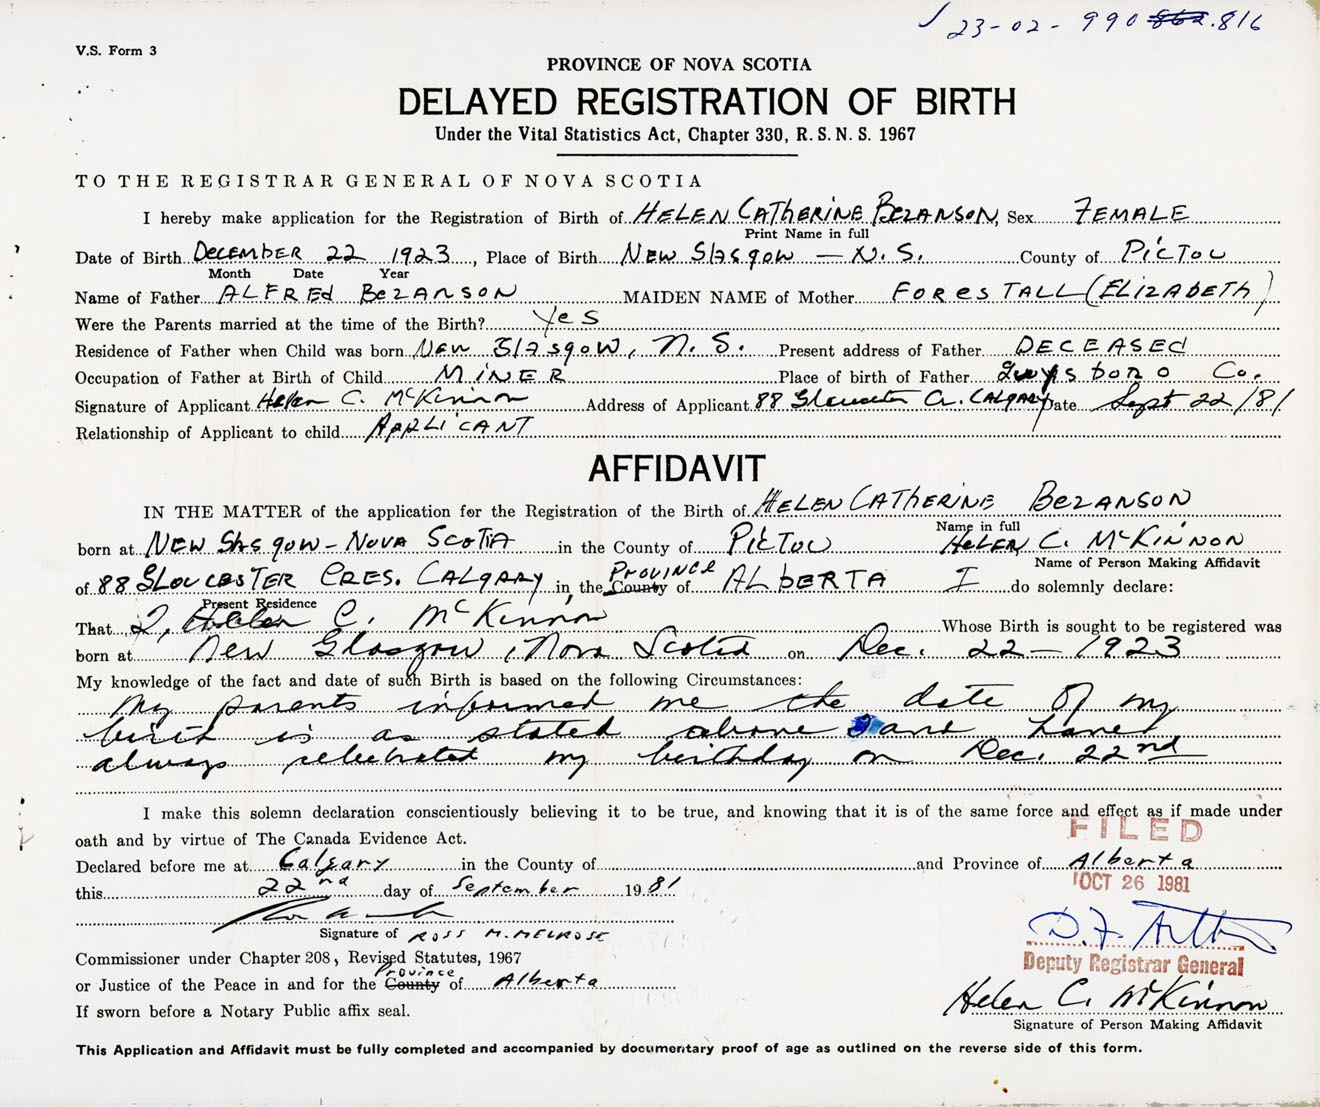 23-02-990 862.816
V.S. Form 3
PROVINCE OF NOVA SCOTIA
DELAYED REGISTRATION OF BIRTH
Under the Vital Statistics Act, Chapter 330, R.S.N.S. 1967
TO THE REGISTRAR GENERAL OF NOVA SCOTIA
I hereby make application for the Registration of Birth of HELEN CATHERINE BEZANSON, Sex FEMALE
Print Name in full
Date of Birth DECEMBER 22 1923, Place of Birth NEW GLASGOW — N.S. County of PICTOU
Month Date Year
Name of Father ALFRED BEZANSON MAIDEN NAME of Mother FORESTALL (ELIZABETH)
Were the Parents married at the time of the Birth? Yes
Residence of Father when Child was born New Glasgow, N.S. Present address of Father DECEASED
Occupation of Father at Birth of Child MINER Place of birth of Father Guysboro Co.
Signature of Applicant Helen C. McKinnon Address of Applicant 88 Gloucester Cr. CALGARY Date Sept 22/81
Relationship of Applicant to child APPLICANT
AFFIDAVIT
IN THE MATTER of the application for the Registration of the Birth of HELEN CATHERINE BEZANSON
Name in full
born at NEW GLASGOW - NOVA SCOTIA in the County of PICTOU HELEN C. McKINNON
Name of Person Making Affidavit
of 88 GLOUCESTER CRES. CALGARY in the County PROVINCE of ALBERTA I do solemnly declare:
Present Residence
That I, Helen C. McKinnon Whose Birth is sought to be registered was
born at New Glasgow, Nova Scotia on Dec. 22 — 1923
My knowledge of the fact and date of such Birth is based on the following Circumstances:
My parents informed me the date of my
birth is as stated above I and have
always celebrated my birthday on Dec. 22nd
I make this solemn declaration conscientiously believing it to be true, and knowing that it is of the same force and effect as if made under
oath and by virtue of The Canada Evidence Act.
FILED
Declared before me at Calgary in the County of and Province of Alberta
this 22nd day of September 1981
OCT 26 1981
Signature of ROSS M. MELROSE
Commissioner under Chapter 208, Revised Statutes, 1967
Deputy Registrar General
or Justice of the Peace in and for the County Province of Alberta
Helen C. McKinnon
If sworn before a Notary Public affix seal.
Signature of Person Making Affidavit
This Application and Affidavit must be fully completed and accompanied by documentary proof of age as outlined on the reverse side of this form.